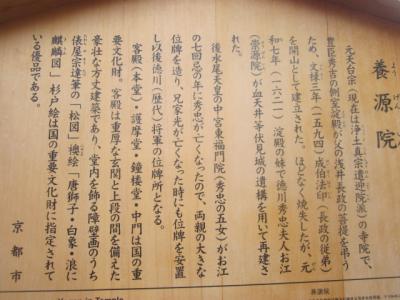 養源院
よう げん
元天台宗(現在は浄土真宗遣迎院派)の寺院で、
豊臣秀吉の側室淀殿が父の浅井長政の菩提を弔う
ため、文禄三年(一五九四)成伯法印(長政の従弟)
を開山として建立された。ほどなく焼失したが、元
和七年(一六二一)淀殿の妹で徳川秀忠夫人お江
(崇源院)が血天井等伏見城の遺構を用いて再建さ
れた。
後水尾天皇の中宮東福門院(秀忠の五女)がお江
の七回忌の年に秀忠が亡くなったので、両親の大きな
位牌を造り、兄家光が亡くなった時にも位牌を安置
し以後徳川(歴代)将軍の位牌所となる。
客殿(本堂)・護摩堂・鐘楼堂・中門は国の重
要文化財。客殿は重厚な玄関と上段の間を備えた
豪壮な方丈建築であり、堂内を飾る障壁画のうち
俵屋宗達筆の「松図」襖絵「唐獅子・白象・浪に
麒麟図」杉戸絵は国の重要文化財に指定されて
いる優品である。
京都市